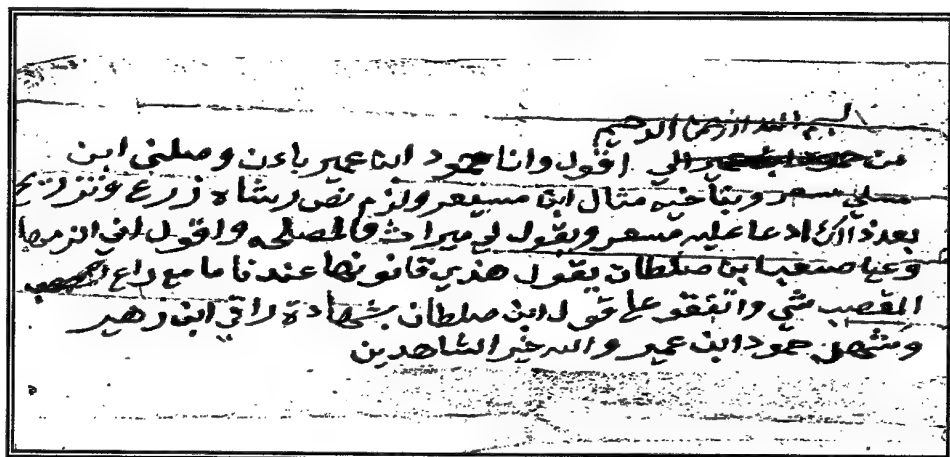 بسم الله الرحمن الرحيم
من حمود ابن عمير الي اقول وانا حمود ابن عمير باءن وصلني ابن
مسلي مسعر مثال ابن مسيعر ولزم نص رشاه زرع
بعد ذالك ادعا عليه مسعر ويقول لي ميراث والمصلحه واقول اني الزمها
وعيا صنعبا ابن صلطان يقول هذي قانونها عندنا ما مع راع
المقصب شي واتفقو علي قول ابن صلطان بشهادة راقي ابن زهير
وشهد حمود ابن عمير والله خير الشاهدين